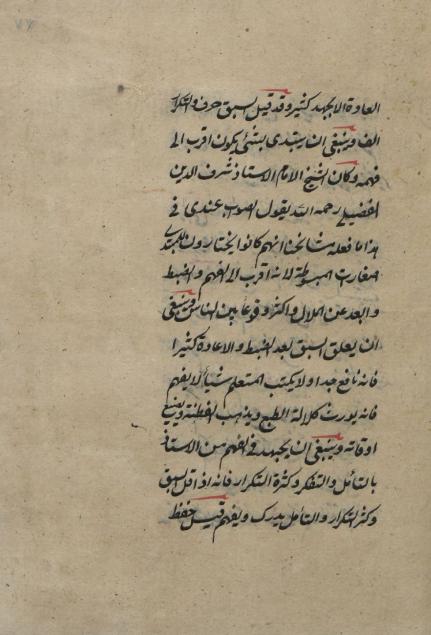 العادة الا بجهد كثير وقد قيل السبق حرف والتكرار
الف وينبغى ان يبتدى بشئ يكون اقرب الى
فهمه وكان الشيخ الامام الاستاذ شرف الدين
رحمه الله يقول الصواب عندى فى
هذا ما فعله مشائخنا انهم كانوا يختارون للمبتدى
صغارات المبسوطة لانه اقرب الى الفهم والضبط
وابعد عن الملال واكثر وقوعا بين الناس وينبغى
ان يعلق السبق بعد الضبط والاعادة كثيرا
فانه نافع جدا ولا يكتب المتعلم شيأ لا يفهم
فانه يورث كلالة الطبع ويذهب الفطنة ويضيع
اوقاته وينبغى ان يجهد فى الفهم من الاستاذ
بالتأمل والتفكر وكثرة التكرار فانه اذا قل السبق
وكثر التكرار والتأمل يدرك ويفهم قيل حفظ